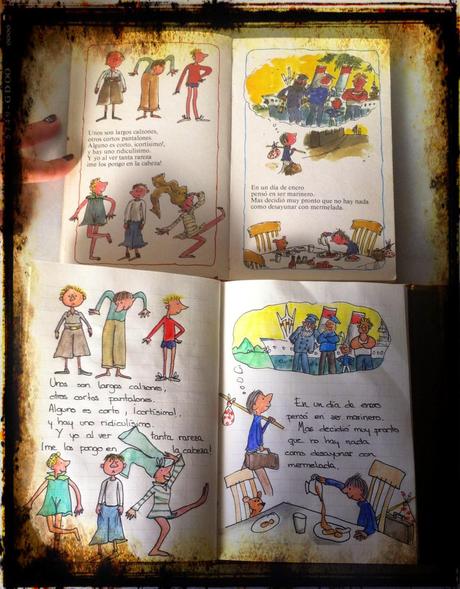 Unos son largos calzones,
otros cortos pantalones.
Alguno es corto, ¡cortísimo!,
y hay uno ridiculísimo.
Y yo al ver tanta rareza
¡me los pongo en la cabeza!
En un día de enero
pensó en ser marinero.
Mas decidió muy pronto que no hay nada
como desayunar con mermelada.
Unos son largos calzones,
otros cortos pantalones.
Alguno es corto, ¡cortísimo!,
y hay uno ridiculísimo.
Y yo al ver tanta rareza
¡me los pongo en la cabeza!
En un día de enero
pensó en ser marinero.
Mas decidió muy pronto
que no hay nada
como desayunar con
mermelada.